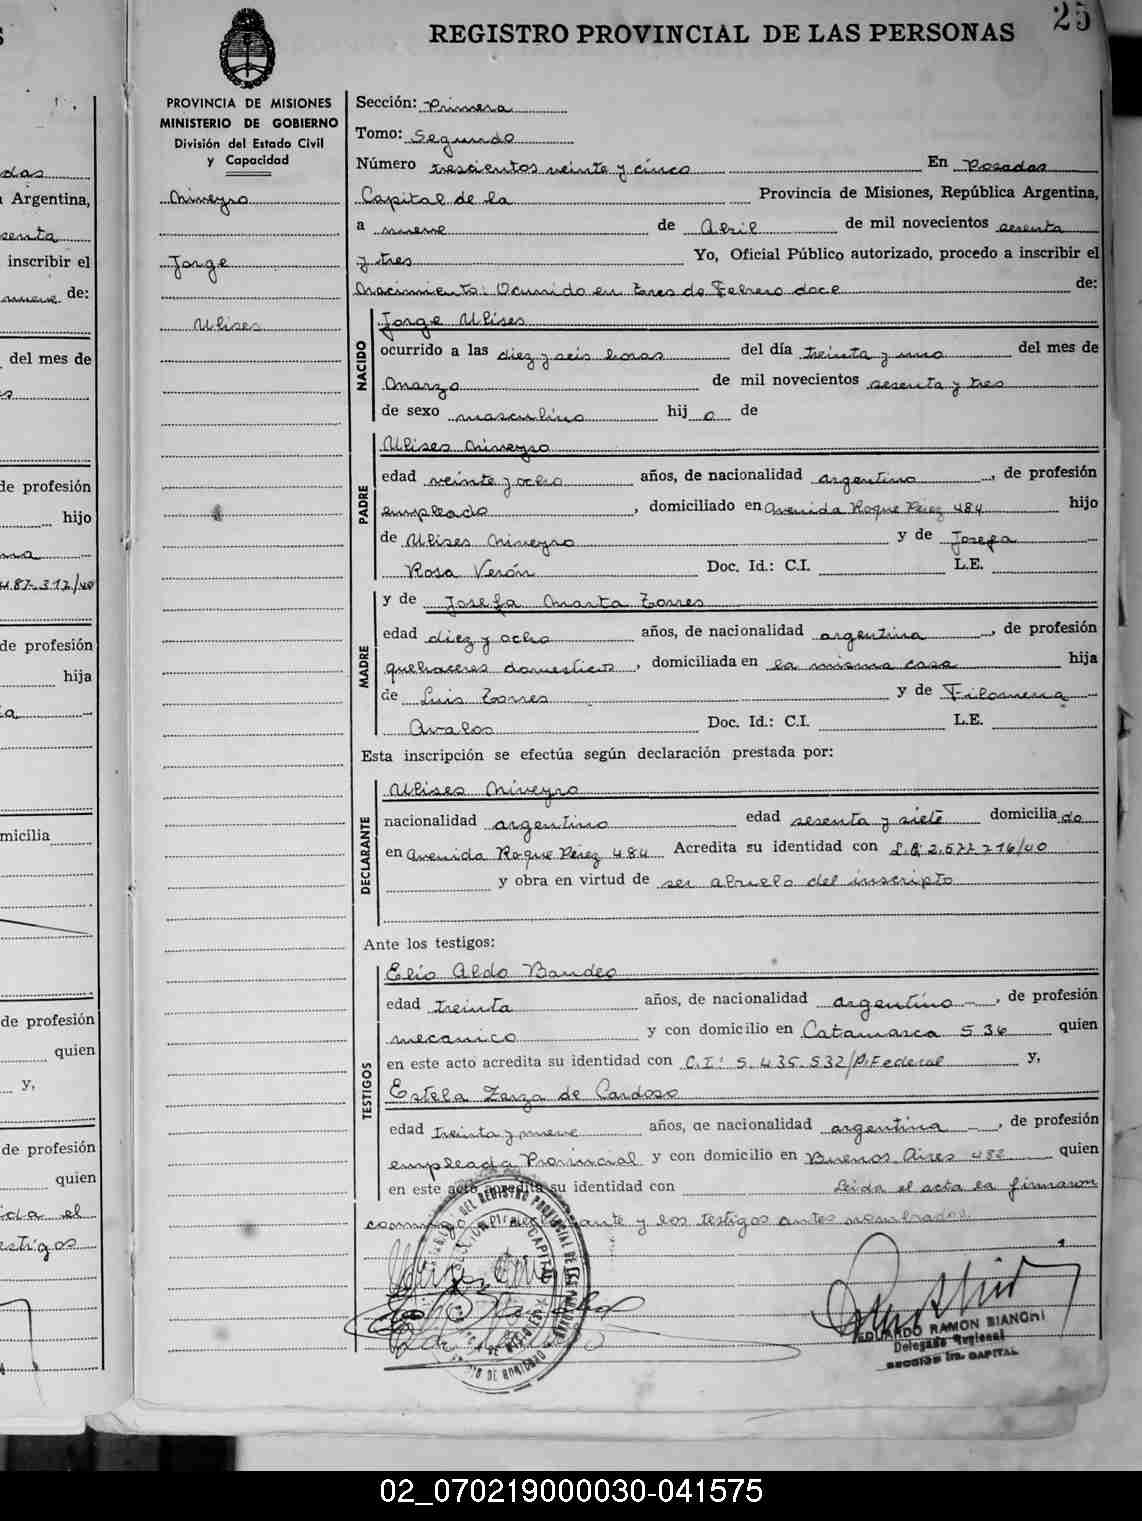 25
REGISTRO PROVINCIAL DE LAS PERSONAS
PROVINCIA DE MISIONES
MINISTERIO DE GOBIERNO
División del Estado Civil
y Capacidad
Niveyro
Jorge
Ulises
Sección: Primera
Tomo: Segundo
Número trescientos veinte y cinco En Posadas
Capital de la Provincia de Misiones, República Argentina,
a nueve de Abril de mil novecientos sesenta
y tres Yo, Oficial Público autorizado, procedo a inscribir el
Nacimiento: Ocurrido en Tres de Febrero doce de:
NACIDO
Jorge Ulises
ocurrido a las diez y seis horas del día treinta y uno del mes de
Marzo de mil novecientos sesenta y tres
de sexo masculino hij o de
PADRE
Ulises Niveyro
edad veinte y ocho años, de nacionalidad argentino, de profesión
empleado, domiciliado en Avenida Roque Pérez 484 hijo
de Ulises Niveyro y de Josefa
Rosa Verón Doc. Id.: C.I. L.E.
MADRE
y de Josefa Marta Torres
edad diez y ocho años, de nacionalidad argentina, de profesión
quehaceres domesticos, domiciliada en la misma casa hija
de Luis Torres y de Filomena
Avalos Doc. Id.: C.I. L.E.
Esta inscripción se efectúa según declaración prestada por:
DECLARANTE
Ulises Niveyro
nacionalidad argentino edad sesenta y siete domicilia do
en Avenida Roque Pérez 484 Acredita su identidad con 2.577.716/40
y obra en virtud de ser abuelo del inscripto
Ante los testigos:
TESTIGOS
Elio Aldo Bandeo
edad treinta años, de nacionalidad argentino, de profesión
mecanico y con domicilio en Catamarca 536 quien
en este acto acredita su identidad con C.I: 5.435.532/P.Federal y,
Estela Zarza de Cardoso
edad treinta y nueve años, de nacionalidad argentina, de profesión
empleada Provincial y con domicilio en Buenos Aires 482 quien
en este acto acredita su identidad con Leida el acta la firmaron
conmigo el declarante y los testigos antes nombrados.
EDUARDO RAMON BIANCHI
Delegado Regional
SECCION 1ra. CAPITAL
das
Argentina,
inscribir el
nueve de:
del mes de
de profesión
hijo
de profesión
hija
micilia
de profesión
quien
y,
de profesión
quien
testigos
02_070219000030-041575